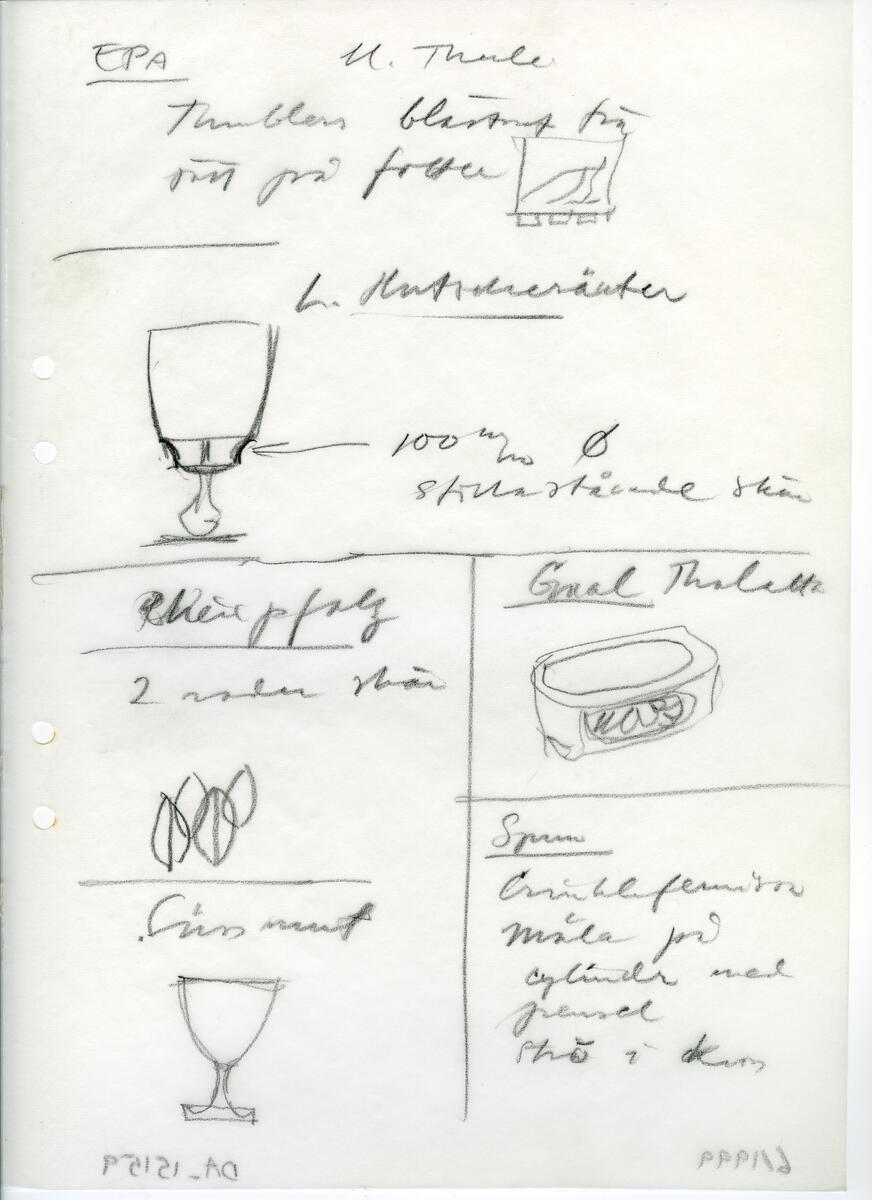 EPA
U. Thule
Tumblers blåsta
rött på foten
L. Hutschenräuter
100 m/m Ø
stillastående skär
Rheinpfalz
2 rader skär
Graal Thaletta
Süssmut
Spun
måla på
cylinder med
pensel
strö i
DA_15159
6/1999